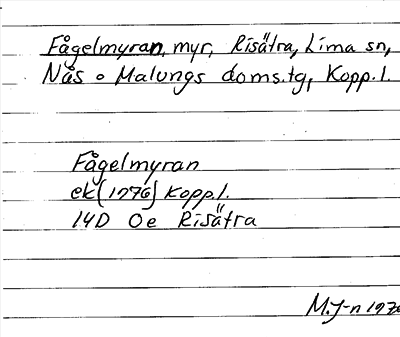 Fågelmyran, myr, Risätra, Lima sn,
Nås o Malungs doms.tg, Kopp.l.
Fågelmyran
ek (1976) Kopp.l.
14D Oe Risätra
M.J-n